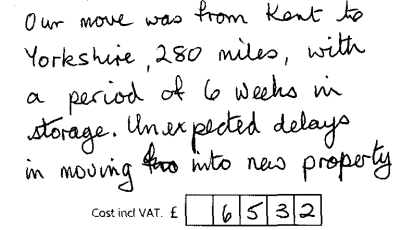 Our move was from Kent to
Yorkshire, 280 miles, with
a period of 6 weeks in
storage. Unexpected delays
in moving into new property
Cost incl VAT. £ 6532